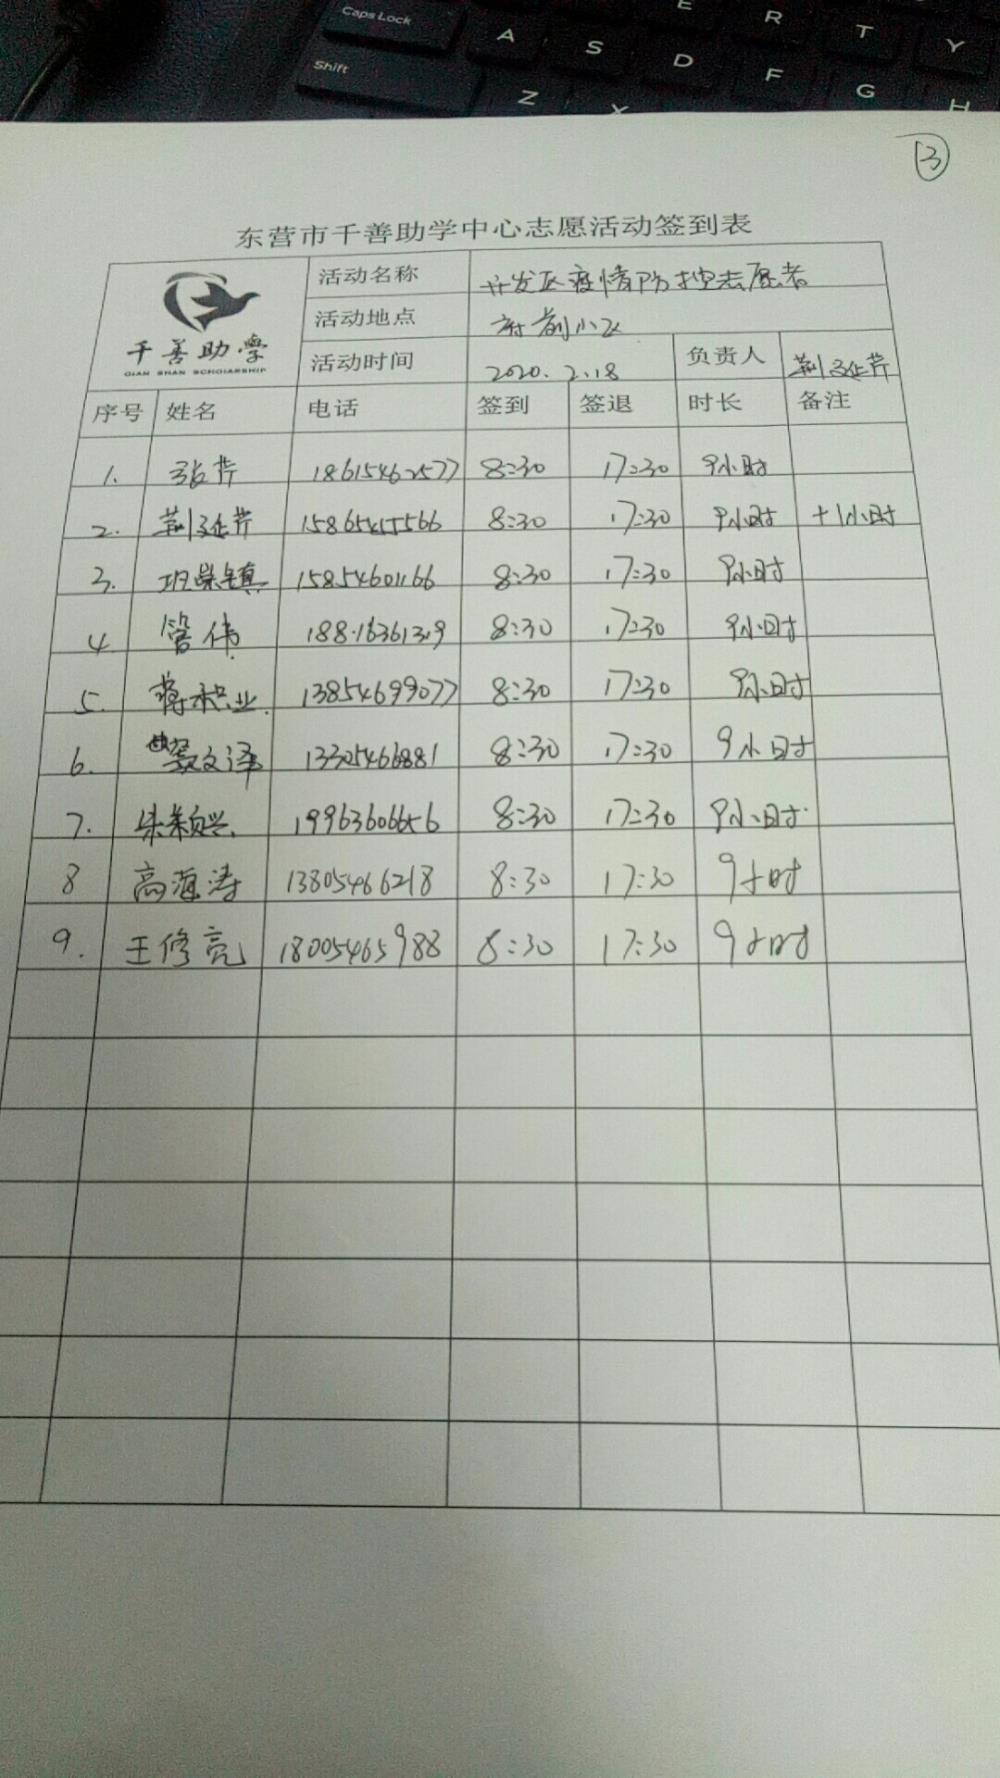 Caps Lock
E R T Y
A S D F G H
Shift
Z X
3
东营市千善助学中心志愿活动签到表
千善助學
QIAN SHAN SCHOLARSHIP
活动名称 开发区疫情防控志愿者
活动地点 府前小区
活动时间 2020.2.18 负责人 荆延芹
序号 姓名 电话 签到 签退 时长 备注
1. 张芹 18615462577 8:30 17:30 9小时
2. 荆延芹 15865415566 8:30 17:30 9小时 +1小时
3. 15854601166 8:30 17:30 9小时
4 管伟 8:30 17:30 9小时
5. 蒋积业 13854699077 8:30 17:30 9小时
6. 文译 13305466881 8:30 17:30 9小时
7. 8:30 17:30 9小时
8 高海涛 13805466218 8:30 17:30 9小时
9. 王修亮 18005465988 8:30 17:30 9小时